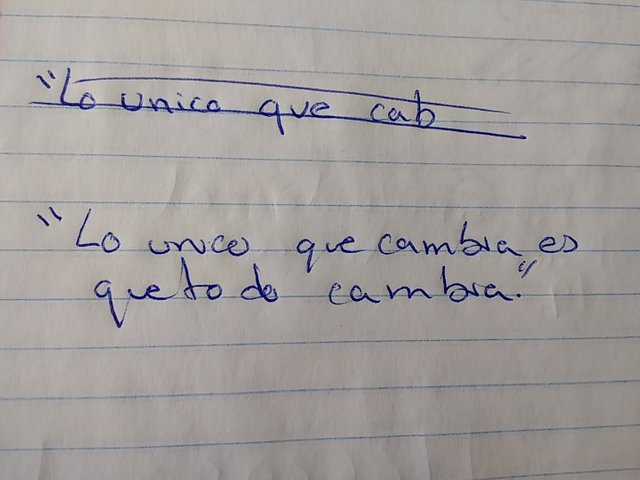 "Lo unico que cab
"Lo unico que cambia es
que todo cambia."